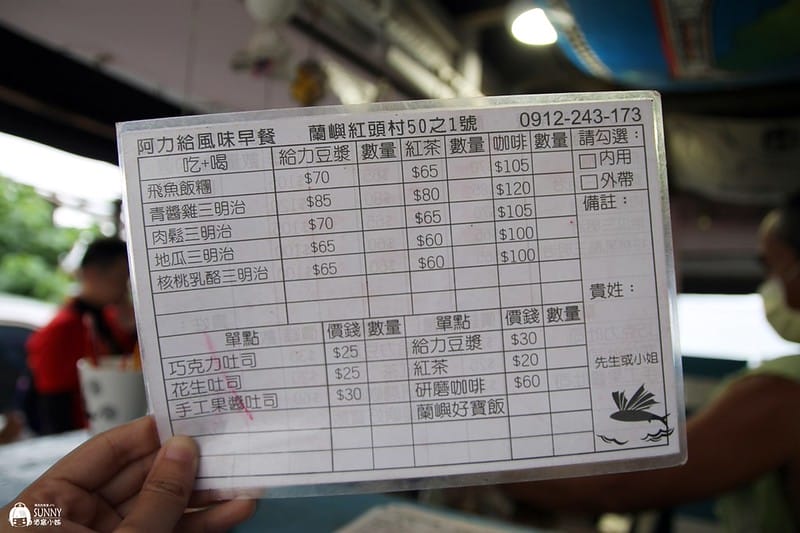 阿力給風味早餐 蘭嶼紅頭村50之1號 0912-243-173
吃+喝 給力豆漿 數量 紅茶 數量 咖啡 數量 請勾選:
飛魚飯糰 $70 $65 $105 內用
青醬雞三明治 $85 $80 $120 外帶
肉鬆三明治 $70 $65 $105 備註:
地瓜三明治 $65 $60 $100
核桃乳酪三明治 $65 $60 $100
貴姓:
單點 價錢 數量 單點 價錢 數量
巧克力吐司 $25 給力豆漿 $30
花生吐司 $25 紅茶 $20 先生或小姐
手工果醬吐司 $30 研磨咖啡 $60
蘭嶼好寶飯
SUNNY